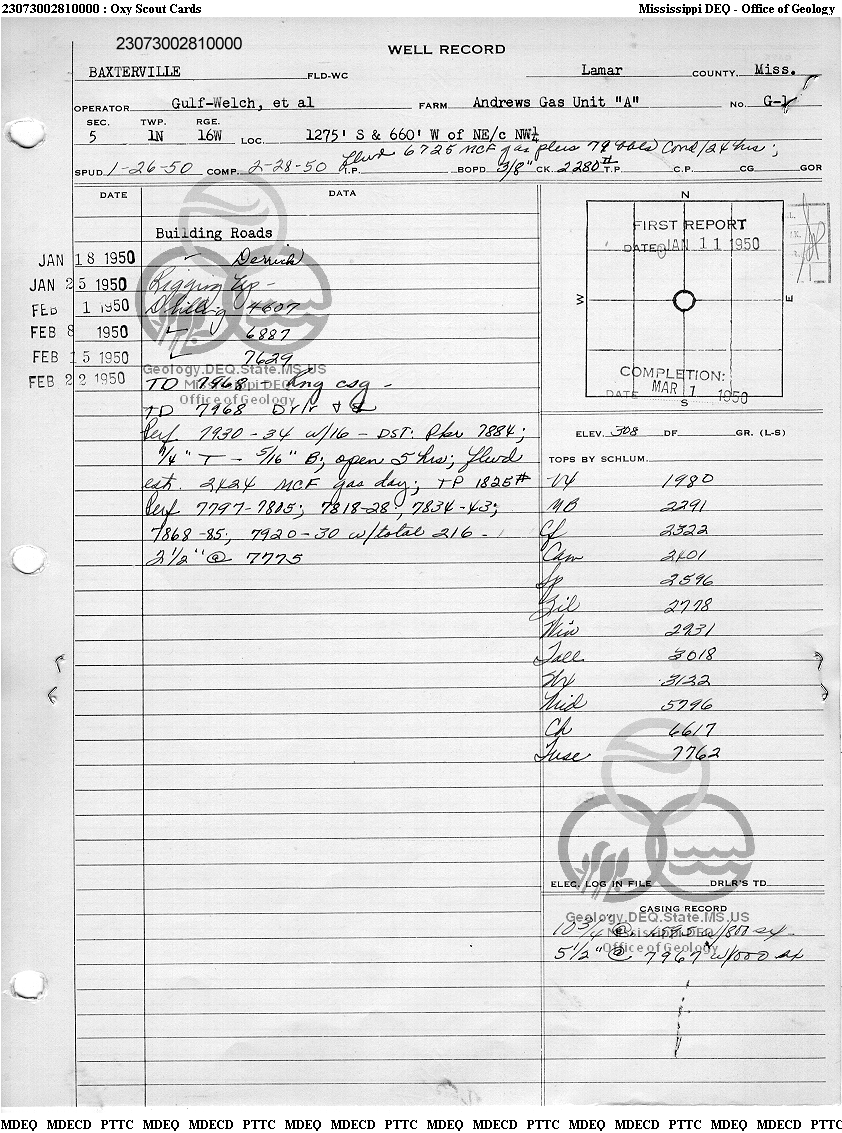 23073002810000 : Oxy Scout Cards Mississippi DEQ - Office of Geology
23073002810000
WELL RECORD
BAXTERVILLE FLD-WC Lamar COUNTY, Miss.
OPERATOR Gulf-Welch, et al FARM Andrews Gas Unit "A" No. G-1
SEC. TWP. RGE.
5 1N 16W LOC. 1275' S & 660' W of NE/c NW¼
Flwd 6725 MCF gas plus 79 bbls Cond/24 hrs;
SPUD 1-26-50 COMP. 2-28-50 T.P. BOPD 3/8" CK. 2280# T.P. C.P. CG GOR
DATE DATA
Building Roads
JAN 18 1950 " Derrick
JAN 25 1950 Rigging Up -
FEB 1 1950 Drilling 4607
FEB 8 1950 6887
FEB 15 1950 7629
FEB 22 1950 TD 7968 - Rng csg -
TD 7968 Drlr &
Perf. 7930-34 w/16 - DST: Pkr 7884;
1/4" T - 5/16" B; open 5 hrs; flwd
est. 2424 MCF gas day; TP 1825#
Perf 7797-7805; 7818-28; 7834-43;
7868-85; 7920-30 w/total 216 -
2 1/2" @ 7775
Geology.DEQ.State.MS.US
Mississippi DEQ
Office of Geology
N
FIRST REPORT
DATE JAN 11 1950
W E
COMPLETION:
DATE MAR 1 1950
S
ELEV. 308 DF GR. (L-S)
TOPS BY SCHLUM.
Vx 1980
MB 2291
Cf 2322
Cam 2401
Sp 2596
Zil 2778
Win 2931
Tall 3018
Wx 3122
Mid 5796
Ch 6617
Tusc 7762
ELEC. LOG IN FILE DRLR'S TD
CASING RECORD
10 3/4" @ w/800 sx
5 1/2" @ 7967 w/ sx
Geology.DEQ.State.MS.US
Mississippi DEQ
Office of Geology
MDEQ MDECD PTTC MDEQ MDECD PTTC MDEQ MDECD PTTC MDEQ MDECD PTTC MDEQ MDECD PTTC MDEQ MDECD PTTC